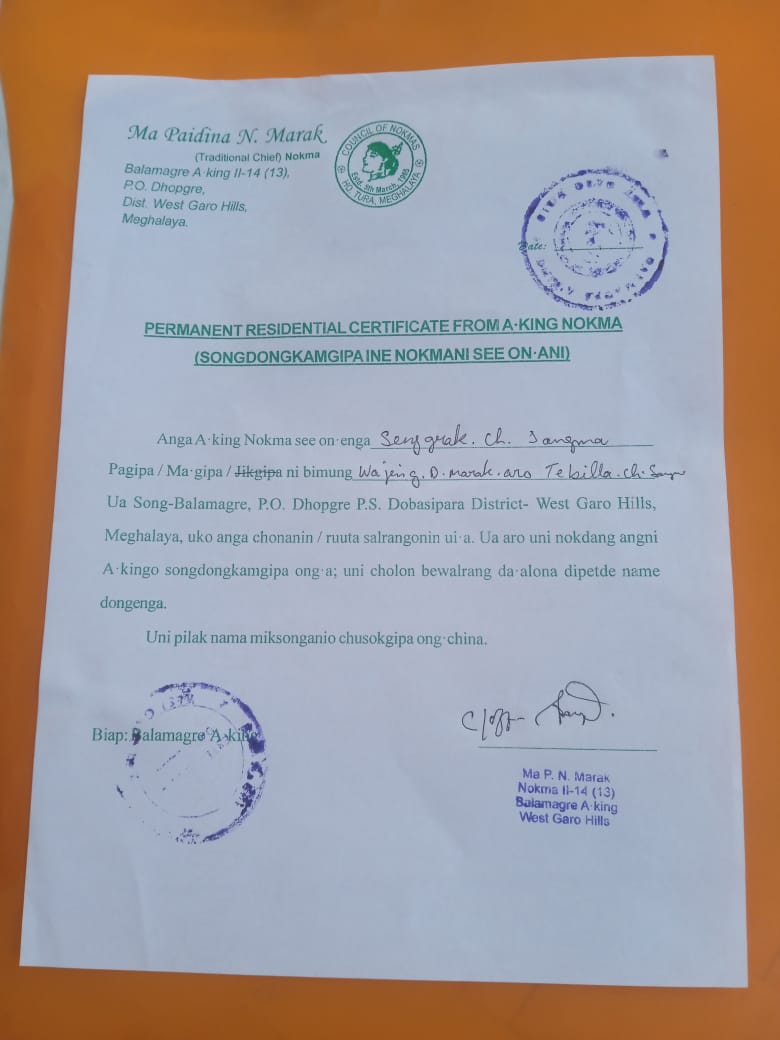 Ma Paidina N. Marak
(Traditional Chief) Nokma
Balamagre A·king II-14 (13),
P.O. Dhopgre,
Dist. West Garo Hills,
Meghalaya.
COUNCIL OF NOKMAS
Estd. 5th March, 1985
HQ. TURA, MEGHALAYA
Date:
PERMANENT RESIDENTIAL CERTIFICATE FROM A·KING NOKMA
(SONGDONGKAMGIPA INE NOKMANI SEE ON·ANI)
Anga A·king Nokma see on·enga Senggrak. Ch. Sangma
Pagipa / Ma·gipa / Jikgipa ni bimung Wajeng. D. Marak. aro Tebilla. ch.
Ua Song-Balamagre, P.O. Dhopgre P.S. Dobasipara District- West Garo Hills,
Meghalaya, uko anga chonanin / ruuta salrangonin ui·a. Ua aro uni nokdang angni
A·kingo songdongkamgipa ong·a; uni cholon bewalrang da·alona dipetde name
dongenga.
Uni pilak nama miksonganio chusokgipa ong·china.
Biap: Balamagre A·king
Ma P. N. Marak
Nokma II-14 (13)
Balamagre A·king
West Garo Hills